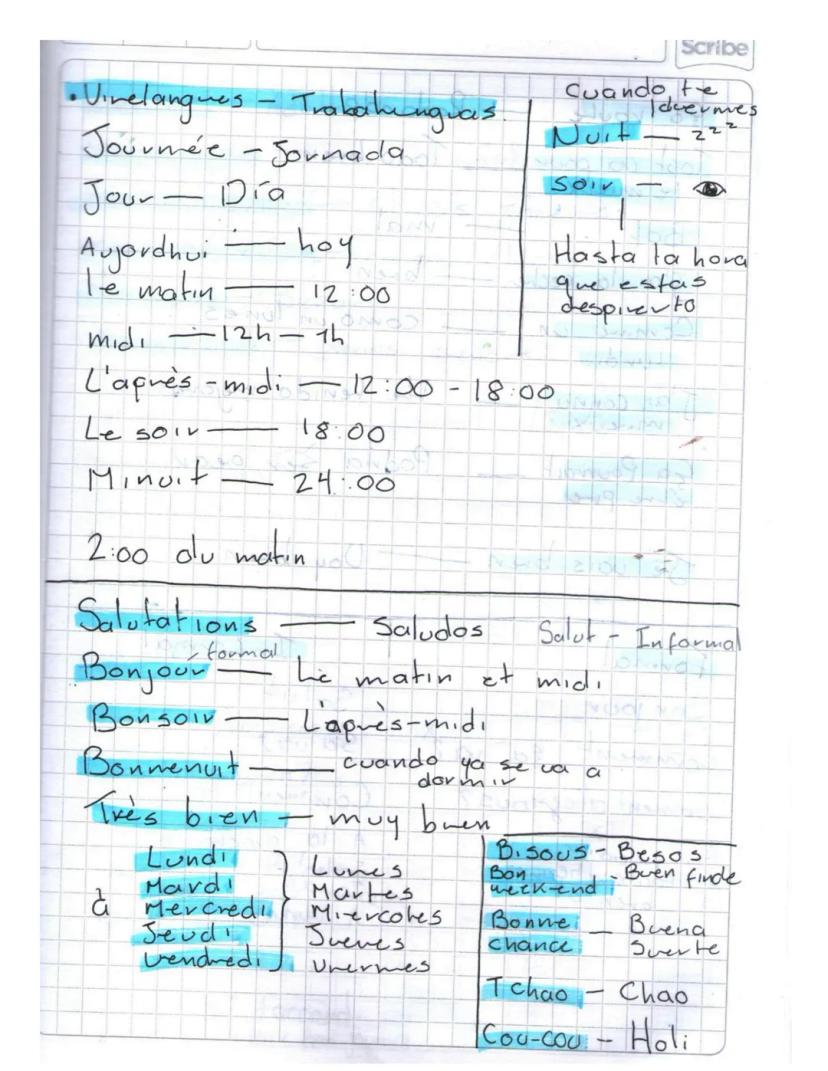 Scribe
• Virelangues - Trabalenguas
Journée - Jornada
Jour — Día
Aujordhui — hoy
le matin — 12:00
midi — 12h - 1h
L'après-midi — 12:00 - 18:00
Le soir — 18:00
Minuit — 24:00
2:00 du matin
Cuando te
duermes
Nuit — zzz
Soir —
Hasta la hora
que estas
despierto
Salutations — Saludos Salut - Informal
formal
Bonjour — Le matin et midi
Bonsoir — L'après-midi
Bonnenuit — cuando ya se va a
dormir
Très bien — muy buen
à
Lundi
Mardi
Mercredi
Jeudi
Vendredi
Lunes
Martes
Miercoles
Jueves
Viernes
Bisous - Besos
Bon week-end - Buen finde
Bonne chance — Buena Suerte
Tchao - Chao
Cou-cou - Holi